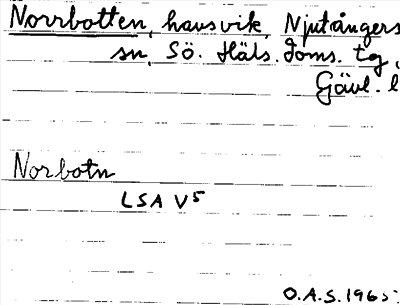 Norrbotten, havsvik, Njutångers
sn, Sö. Häls. doms. tg,
Gävl. l
Norbotn
LSA V5
O.A.S. 1965